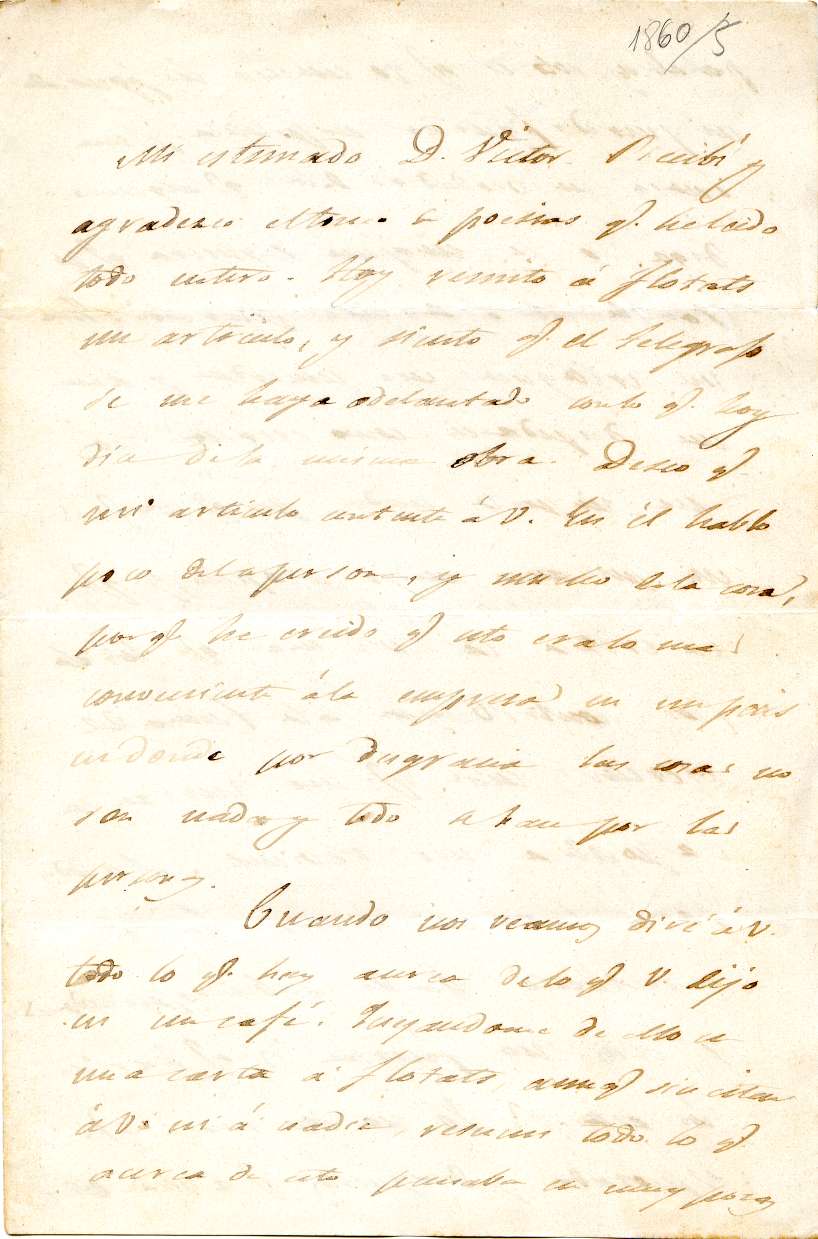 1860/5
Mi estimado D. Victor. Recibí y
agradezco el tomo de poesias q.e he leido
todo entero. Hoy remito á Flotats
un articulo, y siento q.e el Telegrafo
se me haya adelantado con lo q.e hoy
dia de la misma obra. Deseo q.e
mi articulo contente á V. En él hablo
poco de la persona, y mucho de la cosa,
porq.e he creido q.e esto era lo mas
conveniente á la empresa en un pais
en donde por desgracia las cosas no
son nada y todo se hace por las
personas.
Cuando nos veamos diré á V.
todo lo q.e hay acerca de lo q.e V. dijo
en un café. Fuyandome de ello en
una carta á Flotats, aunq.e sin citar
á V. ni á nadie, resumi todo lo q.e
acerca de esto pensaba en muy pocas